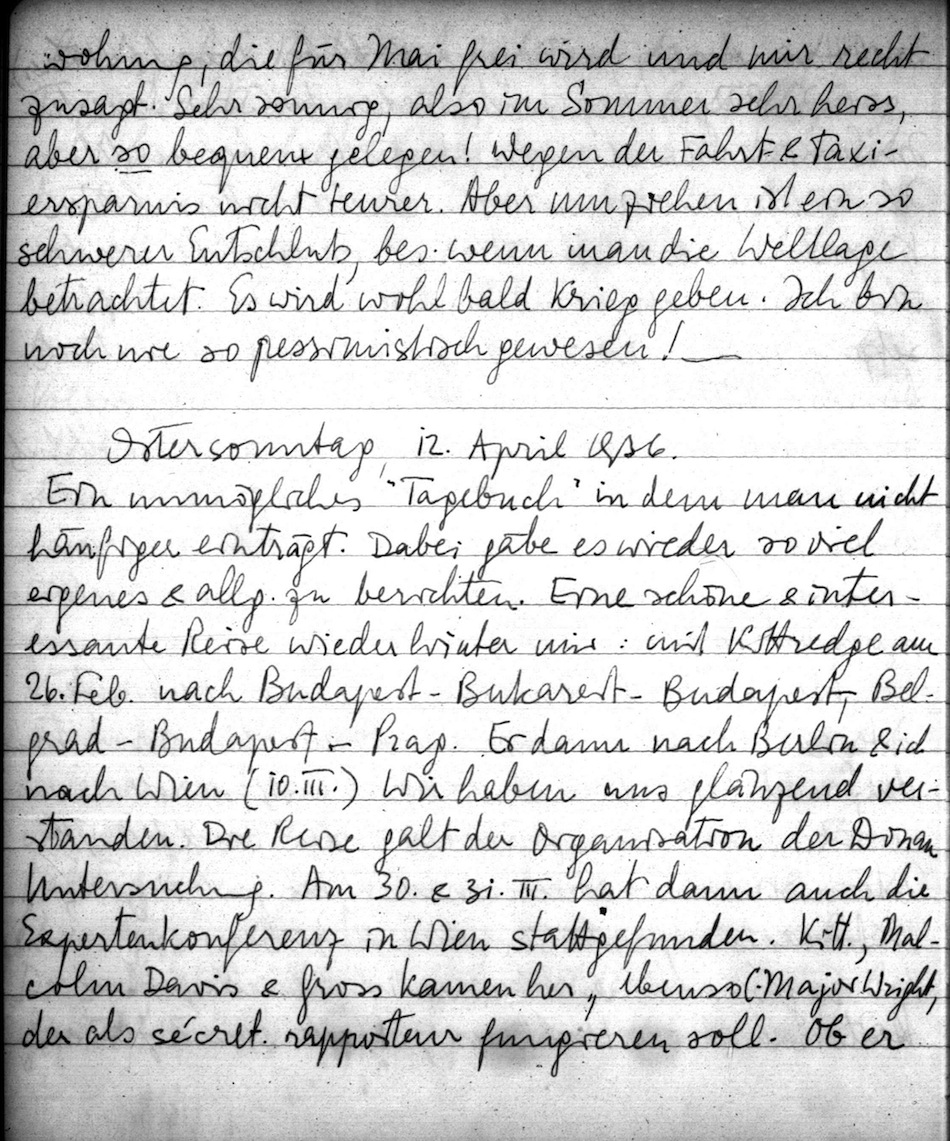 wohnung, die für Mai frei wird und mir recht
zusagt. Sehr sonnig, also im Sommer sehr heiss,
aber so bequem gelegen! Wegen der Fahrt- & Taxi-
ersparnis nicht teurer. Aber umziehen ist ein so
schwerer Entschluß, bes. wenn man die Weltlage
betrachtet. Es wird wohl bald Krieg geben. Ich bin
noch nie so pessimistisch gewesen! —
Ostersonntag, 12. April 1936.
Ein unmögliches "Tagebuch" in dem man nicht
häufiger einträgt. Dabei gäbe es wieder so viel
eigenes & allg. zu berichten. Eine schöne & inter-
essante Reise wieder hinter mir: mit Kittredge am
26. Feb. nach Budapest - Bukarest - Budapest, Bel-
grad - Budapest - Prag. Er dann nach Berlin & ich
nach Wien (10.III.) Wir haben uns glänzend ver-
standen. Die Reise galt der Organisation der Donau
Untersuchung. Am 30. & 31. III. hat dann auch die
Expertenkonferenz in Wien stattgefunden. Kitt., Mal-
colm Davis & Gross kamen her, ebenso Major Wright,
der als sécret. rapporteur fungieren soll. Ob er